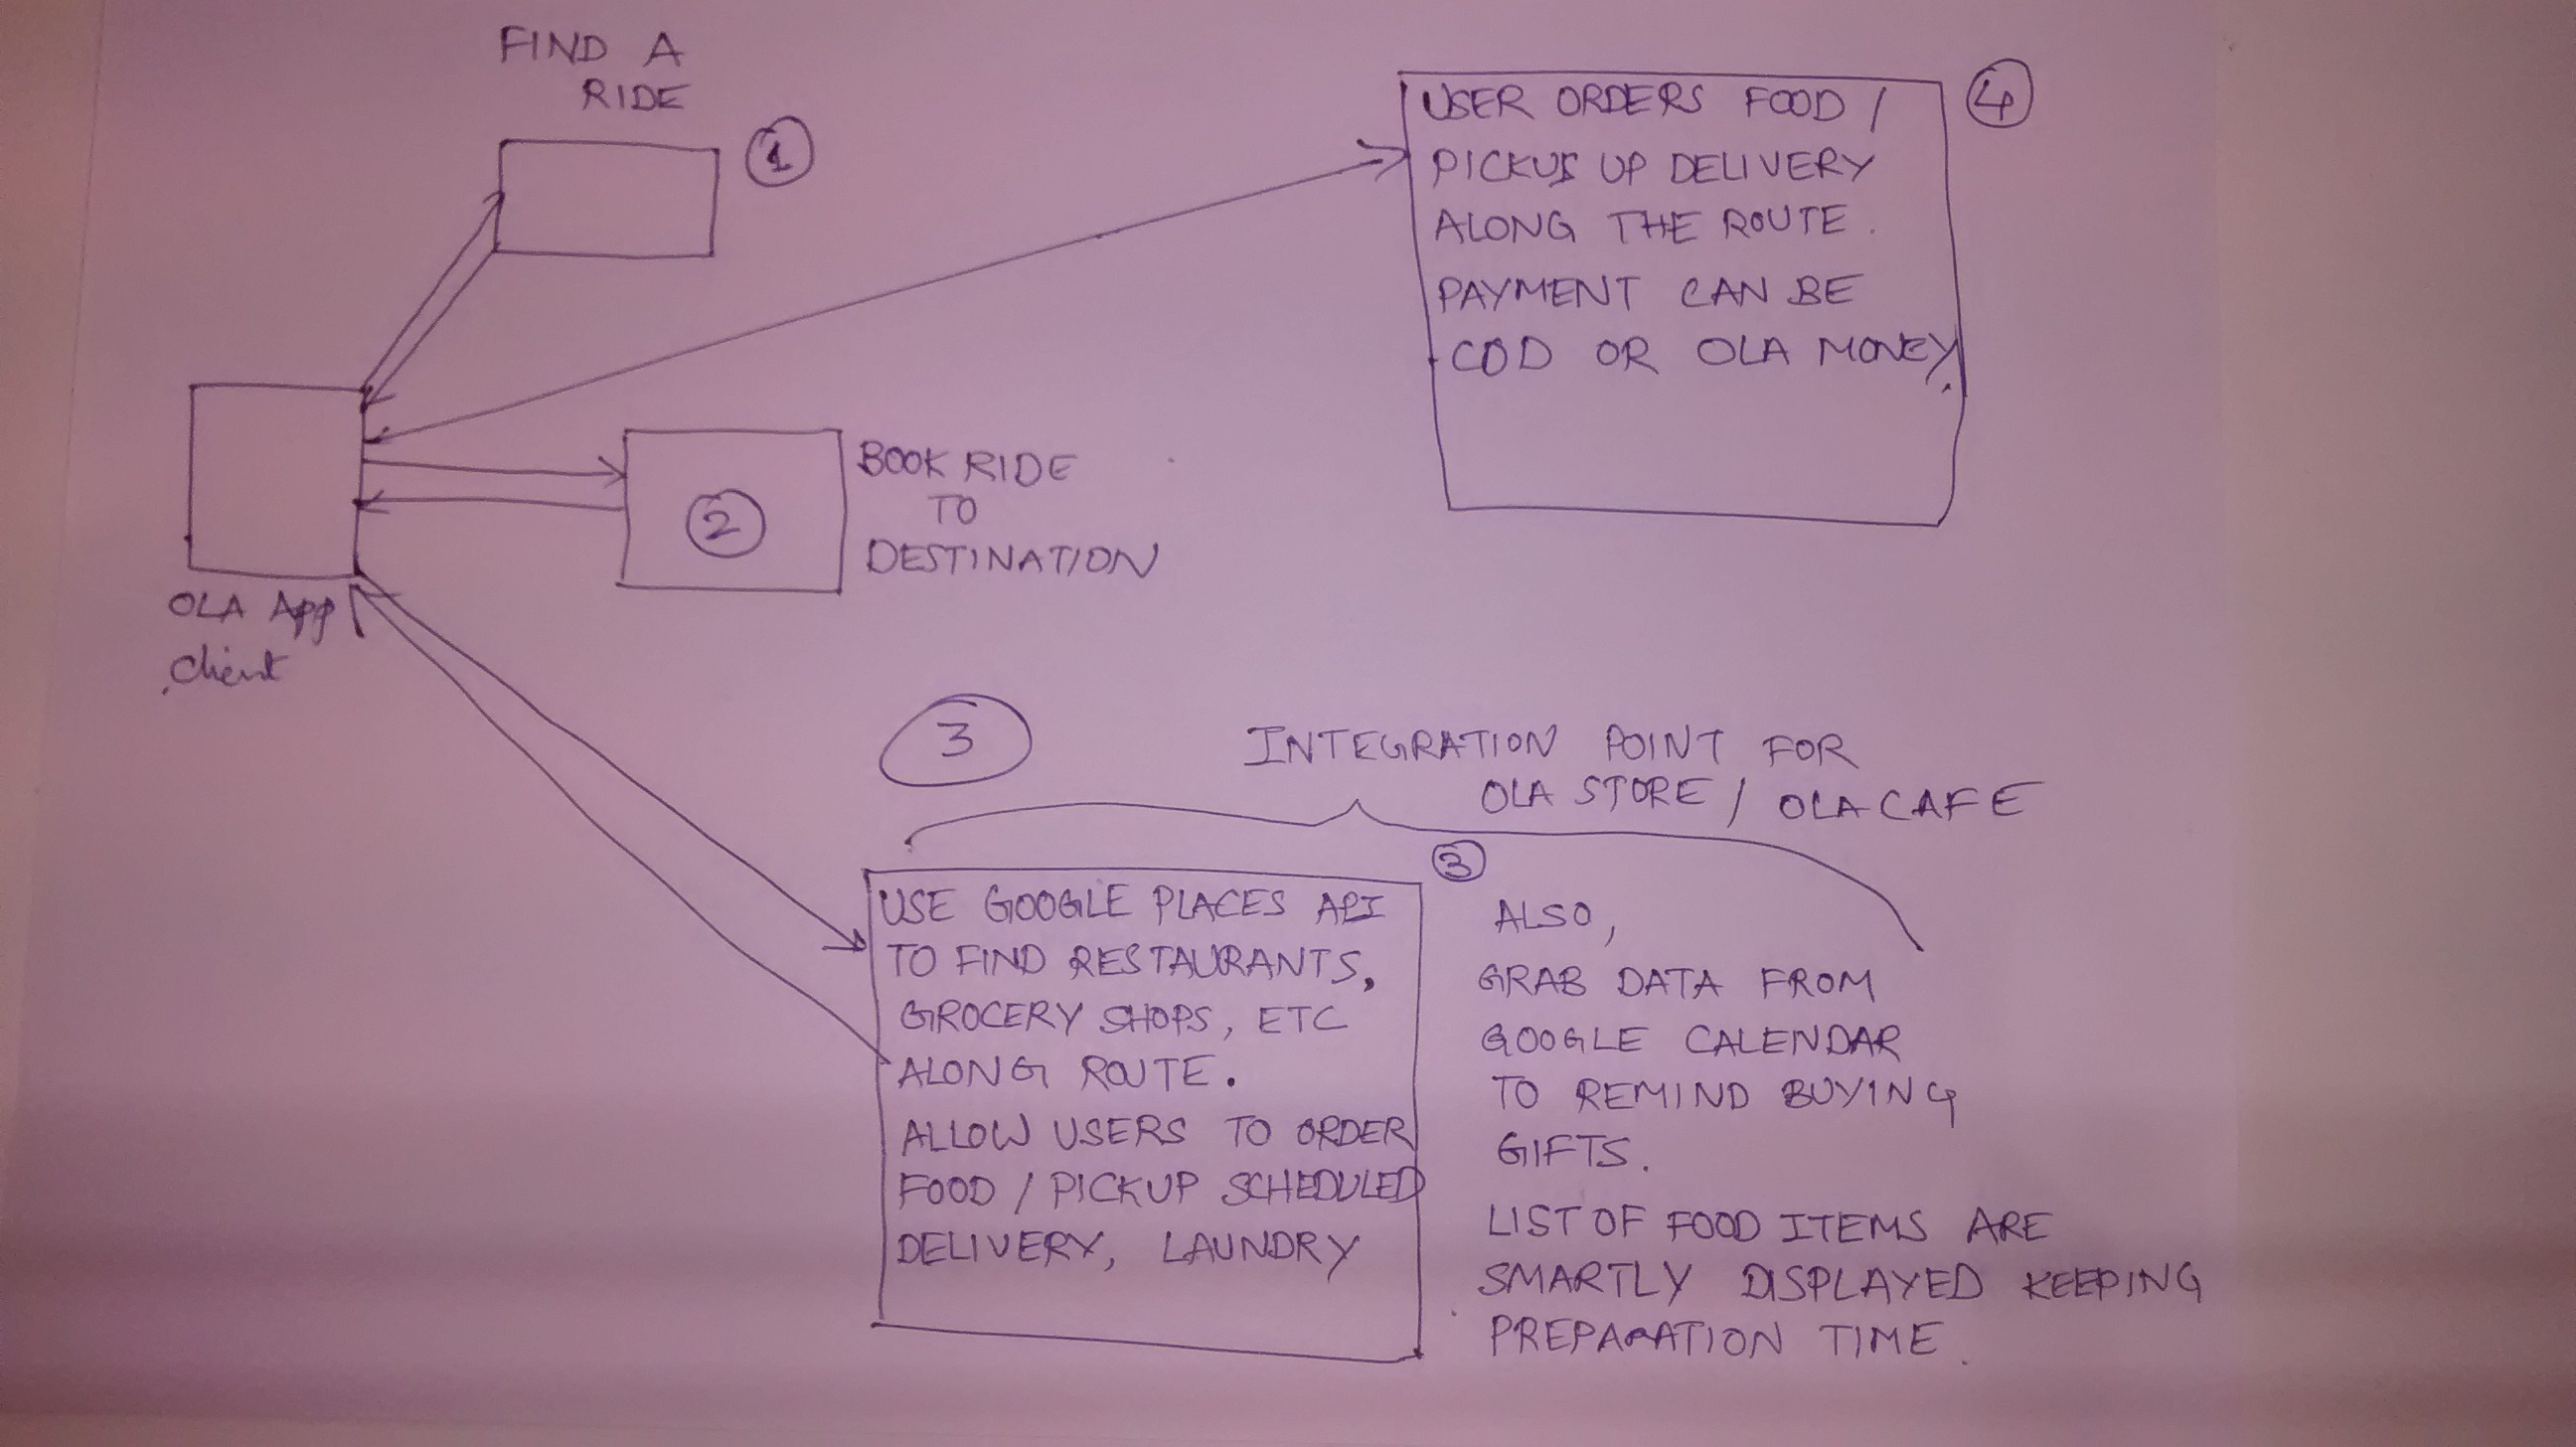 FIND A
RIDE
1
USER ORDERS FOOD /
PICKUS UP DELIVERY
ALONG THE ROUTE.
PAYMENT CAN BE
COD OR OLA MONEY.
4
2
BOOK RIDE
TO
DESTINATION
OLA App
Client
3
INTEGRATION POINT FOR
OLA STORE / OLA CAFE
USE GOOGLE PLACES API
TO FIND RESTAURANTS,
GROCERY SHOPS, ETC
ALONG ROUTE.
ALLOW USERS TO ORDER
FOOD / PICKUP SCHEDULED
DELIVERY, LAUNDRY
3
ALSO,
GRAB DATA FROM
GOOGLE CALENDAR
TO REMIND BUYING
GIFTS.
LIST OF FOOD ITEMS ARE
SMARTLY DISPLAYED KEEPING
PREPARATION TIME.